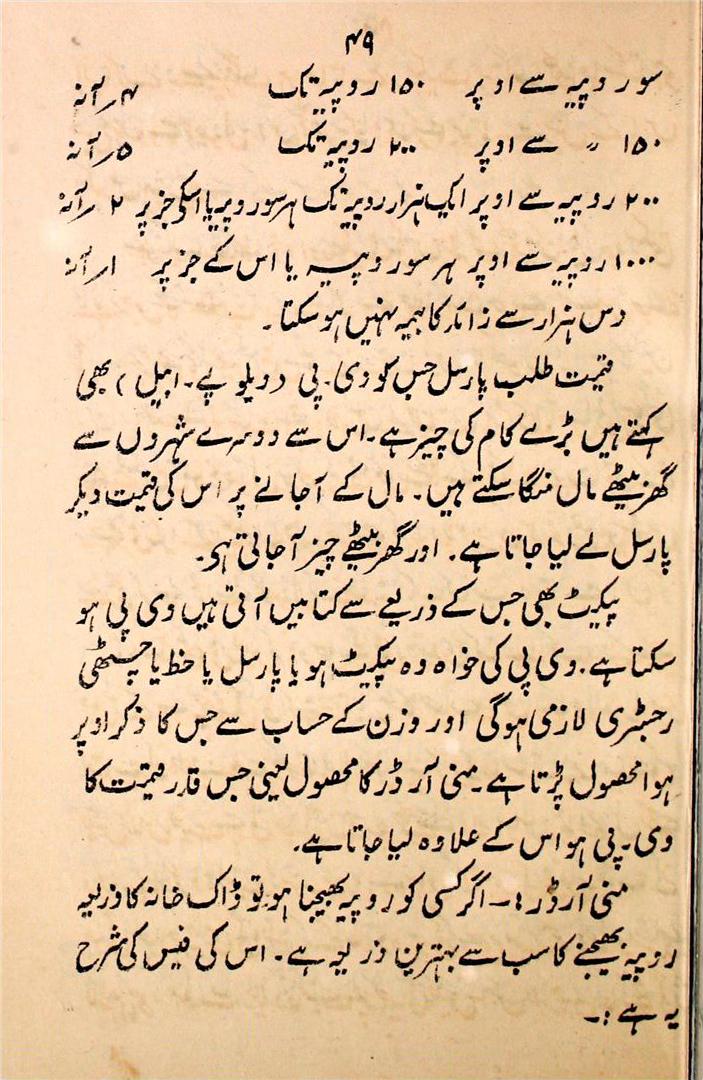 ۴۹
سو روپیہ سے اوپر ۱۵۰ روپیہ تک ۴ر آنہ
۱۵۰ 〃 سے اوپر ۲۰۰ روپیہ تک ۵ر آنہ
۲۰۰ روپیہ سے اوپر ایک ہزار روپیہ تک ہر سو روپیہ یا اسکی جز پر ۲ر آنہ
۱۰۰۰ روپیہ سے اوپر ہر سو روپیہ یا اس کے جز پر ۱ر آنہ
دس ہزار سے زائد کا بیمہ نہیں ہو سکتا۔
قیمت طلب پارسل جس کو وی۔ پی (ویلو پے۔ ایبل) بھی
کہتے ہیں بڑے کام کی چیز ہے۔ اس سے دوسرے شہروں سے
گھر بیٹھے مال منگا سکتے ہیں۔ مال کے آجانے پر اس کی قیمت دیکر
پارسل لے لیا جاتا ہے۔ اور گھر بیٹھے چیز آجاتی ہے۔
پیکیٹ بھی جس کے ذریعے سے کتابیں آتی ہیں وی پی ہو
سکتا ہے۔ وی پی کی خواہ وہ پیکیٹ ہو یا پارسل یا خط یا چٹھی
رجسٹری لازمی ہوگی اور وزن کے حساب سے جس کا ذکر اوپر
ہوا محصول پڑتا ہے۔ منی آرڈر کا محصول یعنی جس قدر قیمت کا
وی۔ پی ہو اس کے علاوہ لیا جاتا ہے۔
منی آرڈر:۔ اگر کسی کو روپیہ بھیجنا ہو تو ڈاک خانہ کا ذریعہ
روپیہ بھیجنے کا سب سے بہترین ذریعہ ہے۔ اس کی فیس کی شرح
یہ ہے:۔